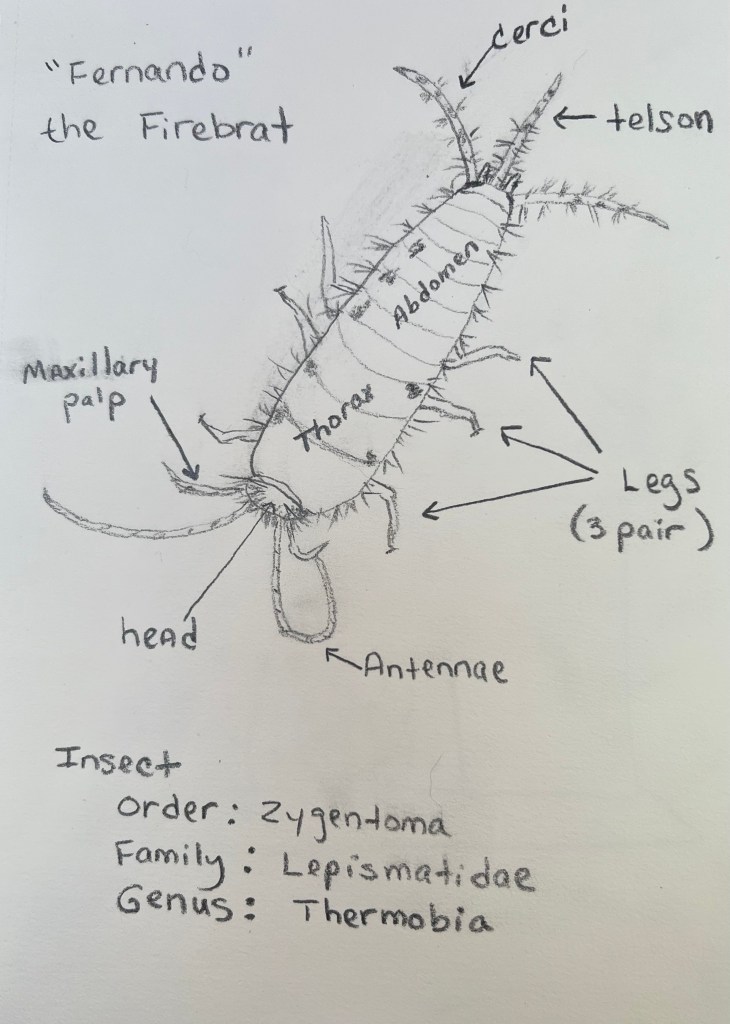 "Fernando"
the Firebrat
cerci
telson
Abdomen
Maxillary
palp
Thorax
Legs
(3 pair)
head
Antennae
Insect
Order: Zygentoma
Family: Lepismatidae
Genus: Thermobia